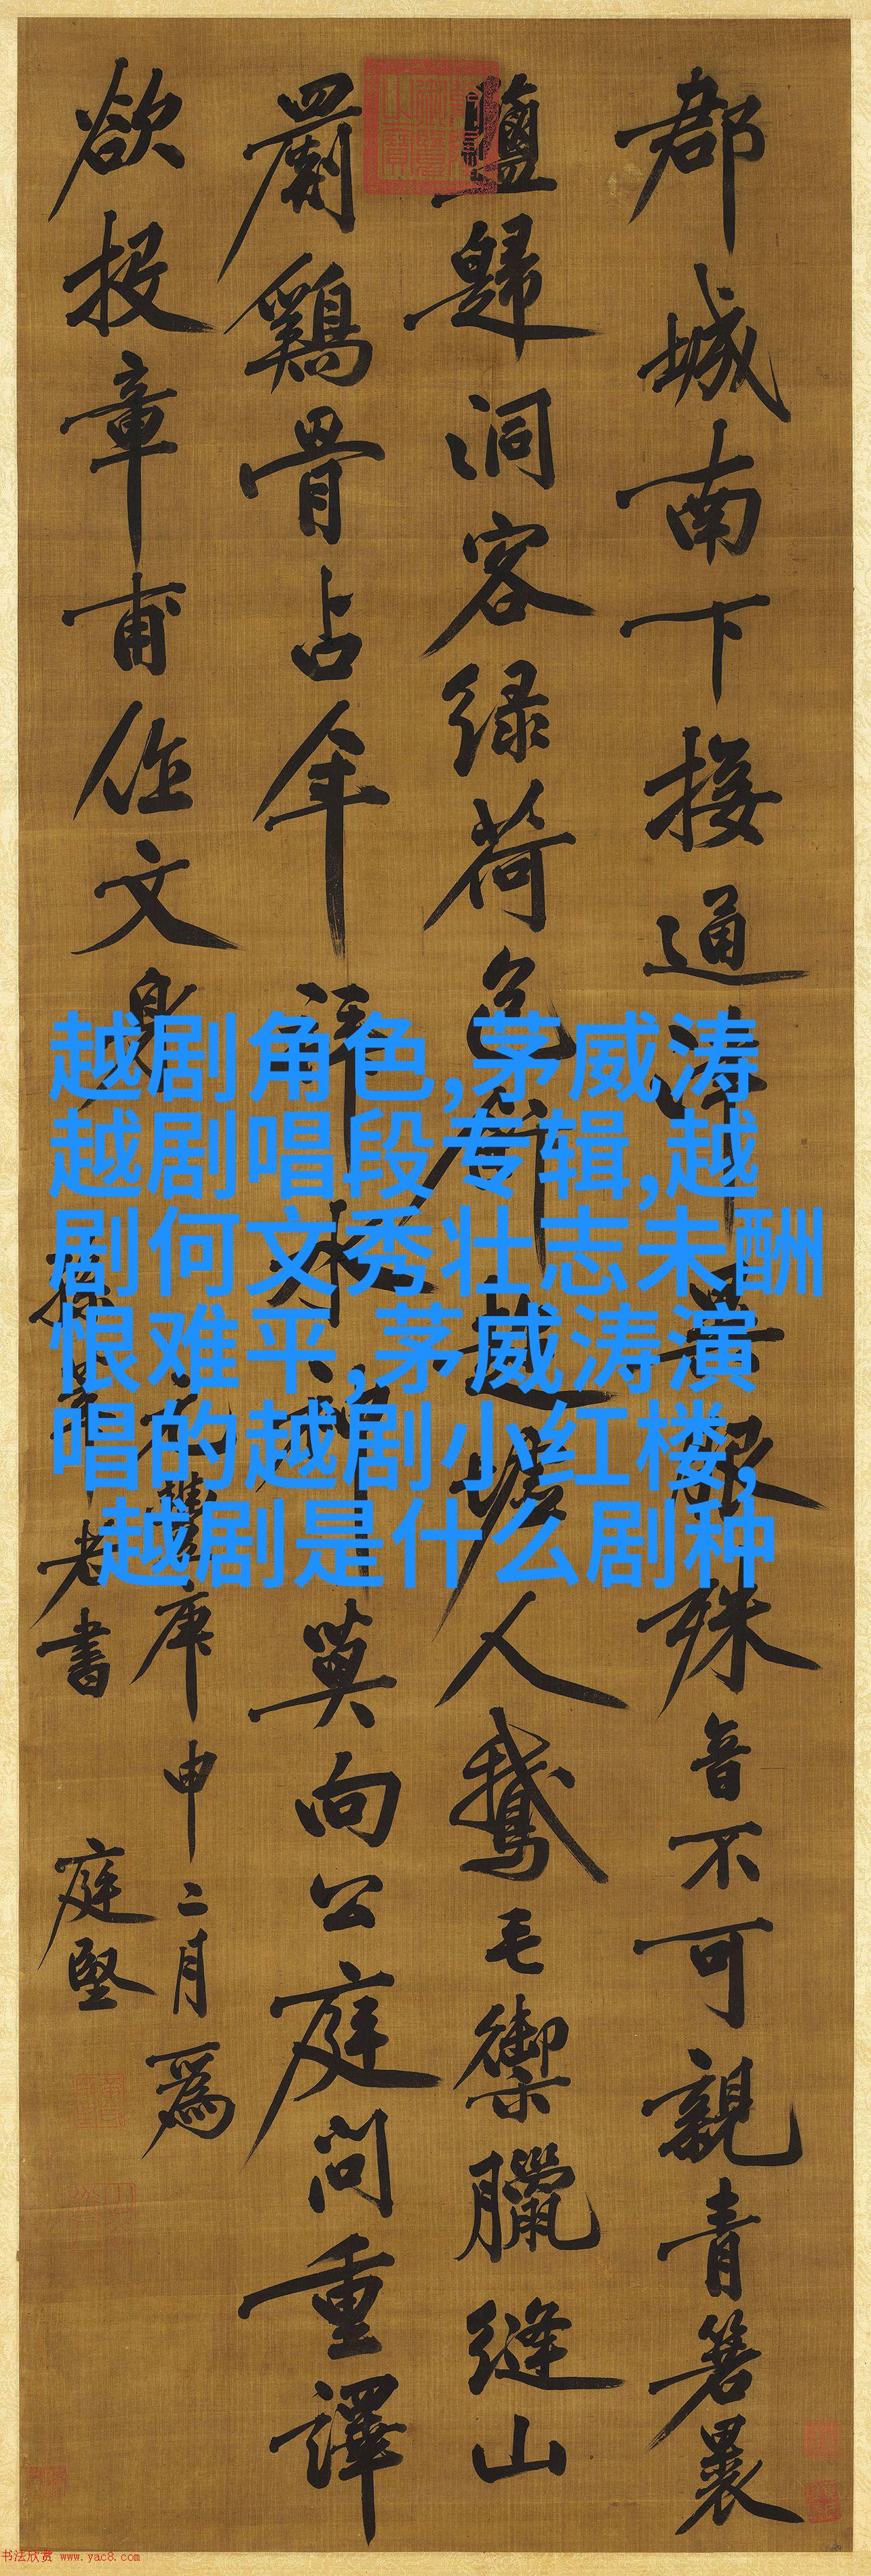 郡城南下接通津異服殊音不可親青箬裹
鹽歸洞客綠荷包飯趁墟人鵝毛御臘縫山
罽鷄骨占年拜水神莫向公庭問重譯
欲投章甫作文身
庚申二月為
老書 庭堅
越剧角色,茅威涛
越剧唱段专辑,越
剧何文秀壮志未酬
恨难平,茅威涛演
唱的越剧小红楼,
越剧是什么剧种
书法欣赏 www.yac8.com